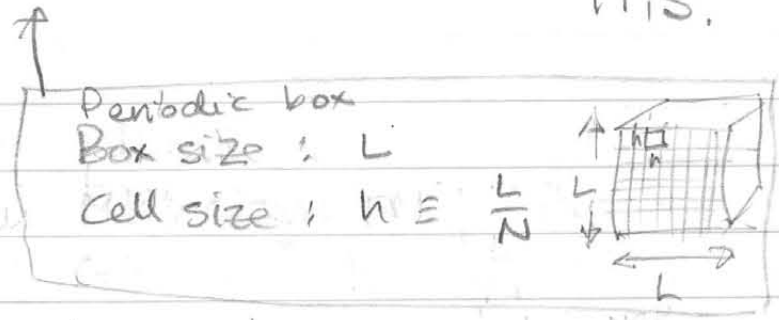 this.
Periodic box
Box size : L
Cell size : h ≡ L/N
L
h
h
L